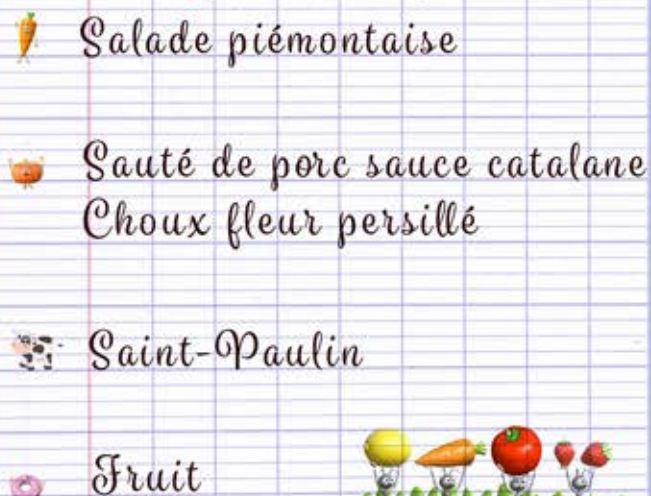 Salade piémontaise
Sauté de porc sauce catalane
Choux fleur persillé
Saint-Paulin
Fruit